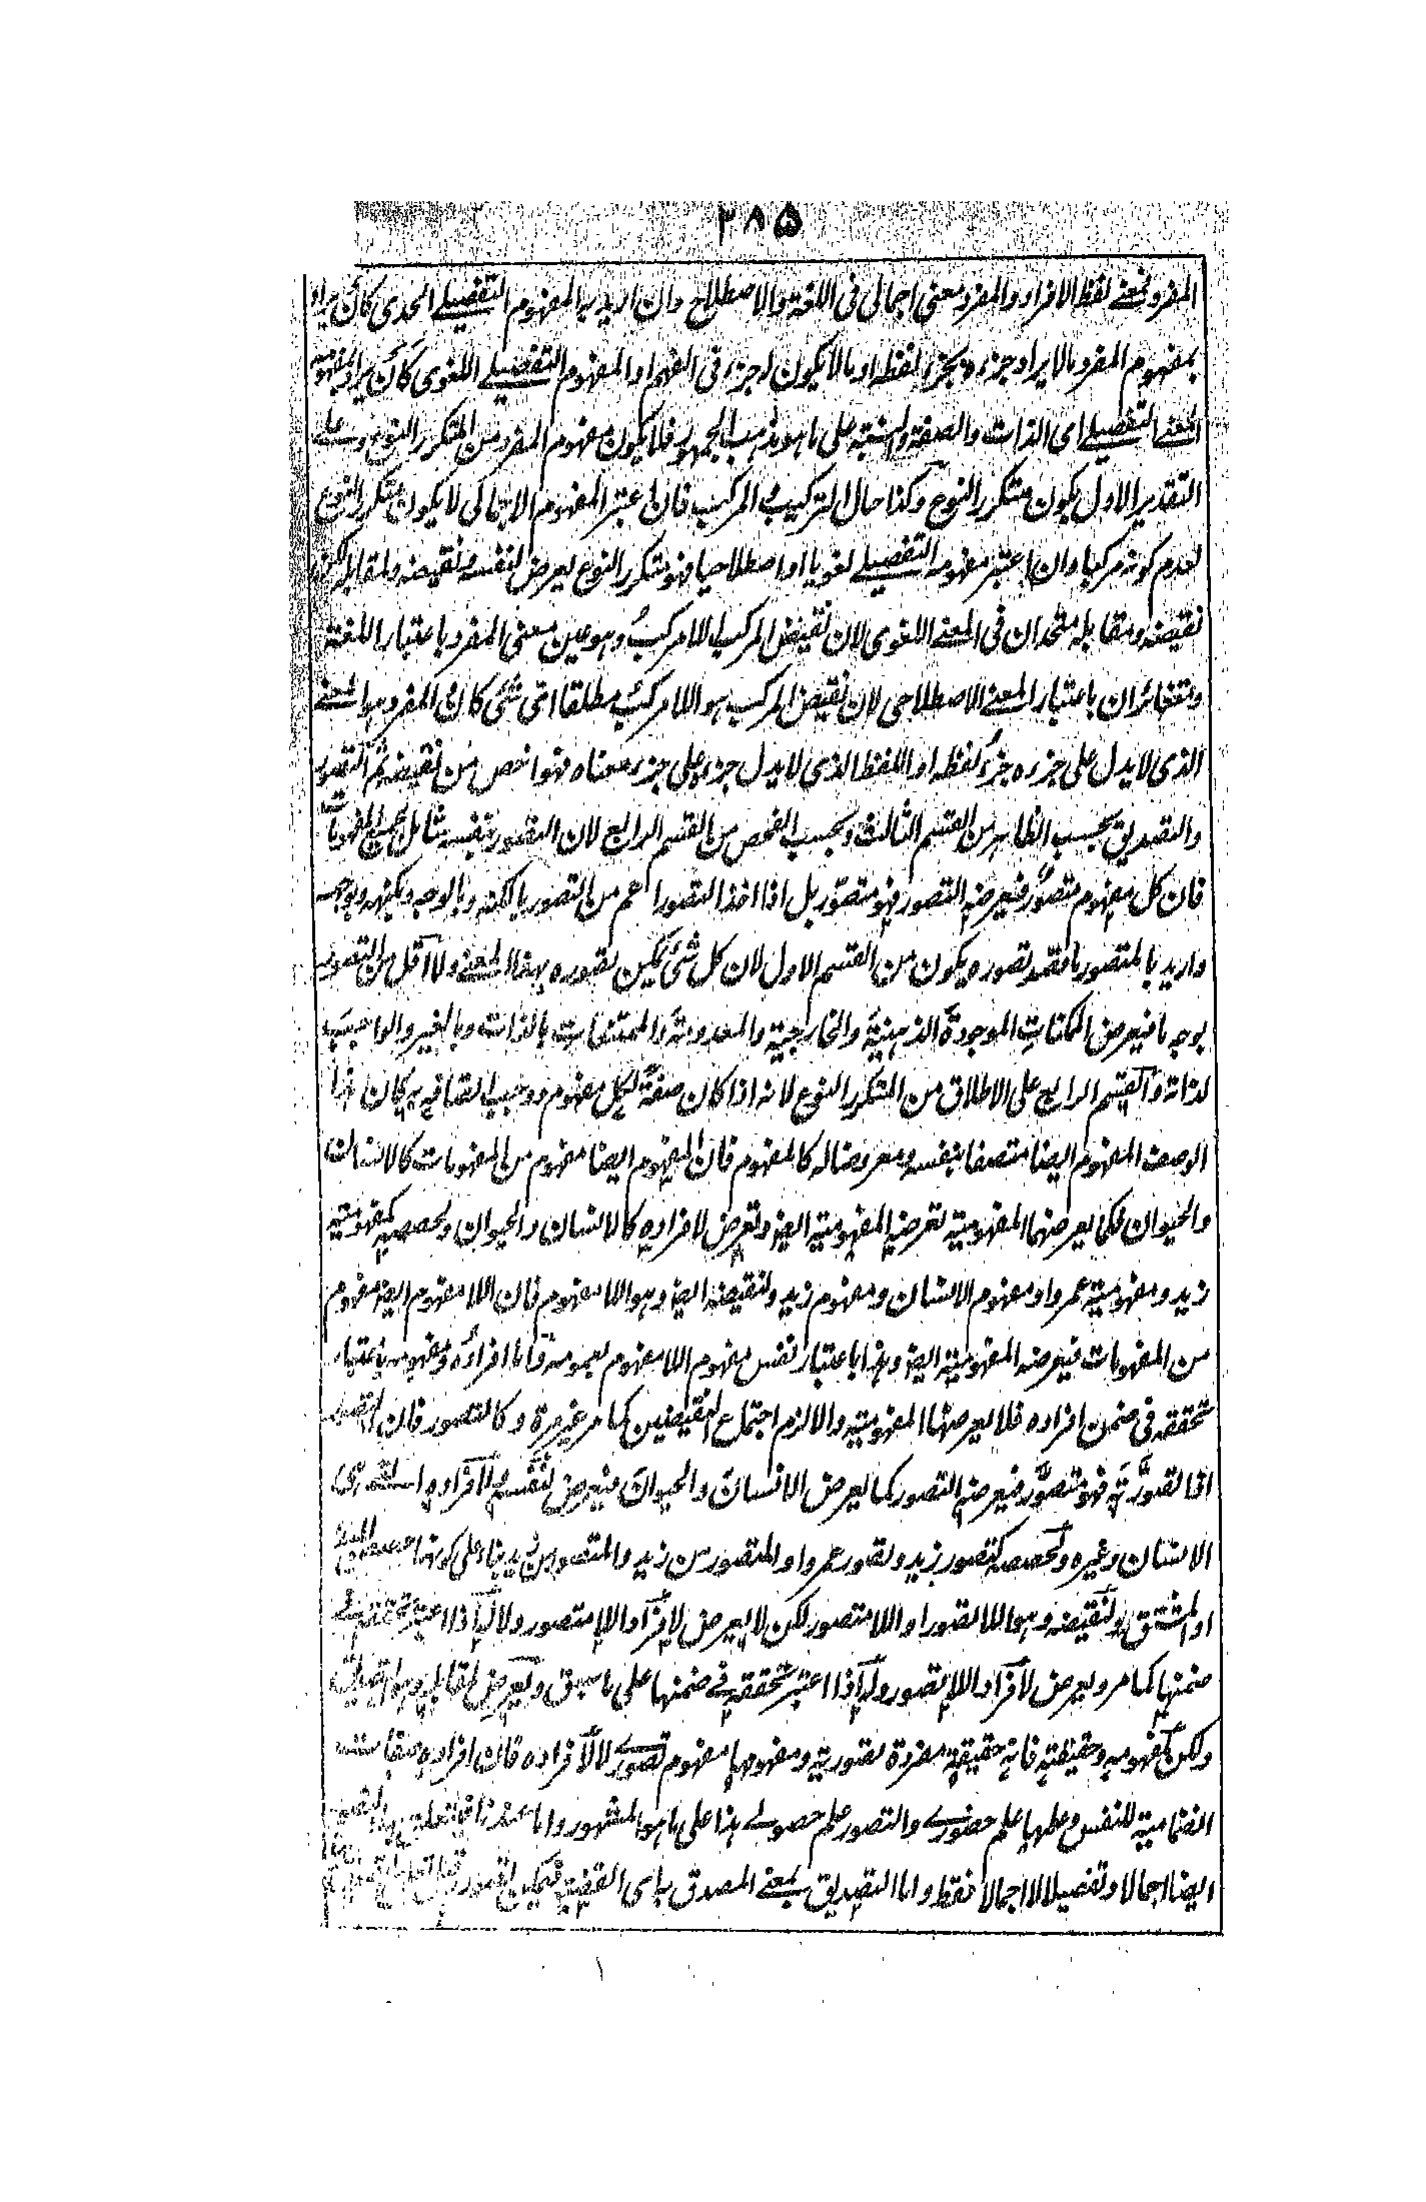 ٢٨٥
المفرد فمعنے لفظ الافراد والمفرد معنى اجمالى فى اللغة والاصطلاح وان اريد به المفهوم التفصيلے الحدى كان يراد
بمفهوم المفرد ما لا يراد جزءه بجزء لفظه او ما لا يكون له جزء فى الفهم او المفهوم التفصيلے اللغوى كان يراد
المعنے التفصيلے اى الذات والصفة والنسبة على ما هو مذهب الجمهور فلا يكون مفهوم المفرد من المتكرر النوع وعلے
التقدير الاول يكون متكرر النوع وكذا حال التركيب فى المركب فان اعتبر المفهوم الاجمالى لا يكون متكرر النوع
لعدم كونه مركبا وان اعتبر مفهومه التفصيلے لغويا او اصطلاحيا فهو متكرر النوع يعرض لنفسه ونقيضه ولمقابله لكن
نقيضه ومقابله متحدان فى المعنے اللغوى لان نقيض المركب اللا مركب وهو عين معنى المفرد باعتبار اللغة
ومتغائران باعتبار المعنے الاصطلاحى لان نقيض المركب هو اللا مركب مطلقا اى شئ كان والمفرد هو المعنے
الذى لا يدل على جزءه جزء لفظه او اللفظ الذى لا يدل جزءه على جزء معناه فهو اخص من نقيضه ثم التصور
والتصديق بحسب الظاهر من القسم الثالث وبحسب الفحص من القسم الرابع لان التصور بنفسه شامل لجميع المفهومات
فان كل مفهوم متصور فيعرضه التصور فهو متصور بل اذا اخذ التصور اعم من التصور بالكنه وبالوجه وبكنهه وبوجهه
واريد بالمتصور ما قصد تصوره يكون من القسم الاول لان كل شئ يمكن تصوره بهذا المعنے ولا اقل من التصور
بوجه ما فيعرض الممكنات الموجودة الذهنية والخارجية والمعدومة والممتنعات بالذات وبالغير والواجب
لذاته والقسم الرابع على الاطلاق من المتكرر النوع لانه اذا كان صفة لكل مفهوم ووجب اتصافه به كان هذا
الوصف المفهوم ايضا متصفا بنفسه ومعروضا له كالمفهوم فان المفهوم ايضا مفهوم من المفهومات كالانسان
والحيوان فكما يعرضهما المفهومية تعرضه المفهومية ايضا وتعرض لافراده كالانسان والحيوان ولحصصه كمفهومية
زيد ومفهومية عمرو او مفهوم الانسان ومفهوم زيد ولنقيضه ايضا وهو اللا مفهوم فان اللا مفهوم ايضا مفهوم
من المفهومات فيعرضه المفهومية ايضا وهذا باعتبار نفس مفهوم اللا مفهوم بعمومه واما افراده ومفهومه باعتبار
تحققه فى ضمن افراده فلا يعرضها المفهومية والا لزم اجتماع النقيضين كما مر غير مرة وكالتصور فان التصور
اذا تصورته فهو متصور فيعرضه التصور كما يعرض الانسان والحيوان فيعرض لنفسه ولافراده
الانسان وغيره ولحصصه كتصور زيد وتصور عمرو او المتصور من زيد والمتصور من زيد بناء على كونها
او المشتق ولنقيضه وهو اللا تصور او اللا متصور لكن لا يعرض لافراد اللا متصور ولا له اذا اعتبر تحققه فے
ضمنها كما مر ويعرض لافراد اللا تصور وله اذا اعتبر تحققه فے ضمنها على ما سبق ويعرض لمقابله وهو التصديق
ولكن لمفهومه وحقيقته فانه حقيقة مفردة تصورية ومفهومها مفهوم تصورے لا لافراده فان افراده صفات
انضمامية للنفس وعلمها علم حضورے والتصور علم حصولے هذا على ما هو المشهور واما عندنا
ايضا اجمالا وتفصيلا لا اجمالا فقط واما التصديق بمعنے المصدق به اى القضية فيمكن